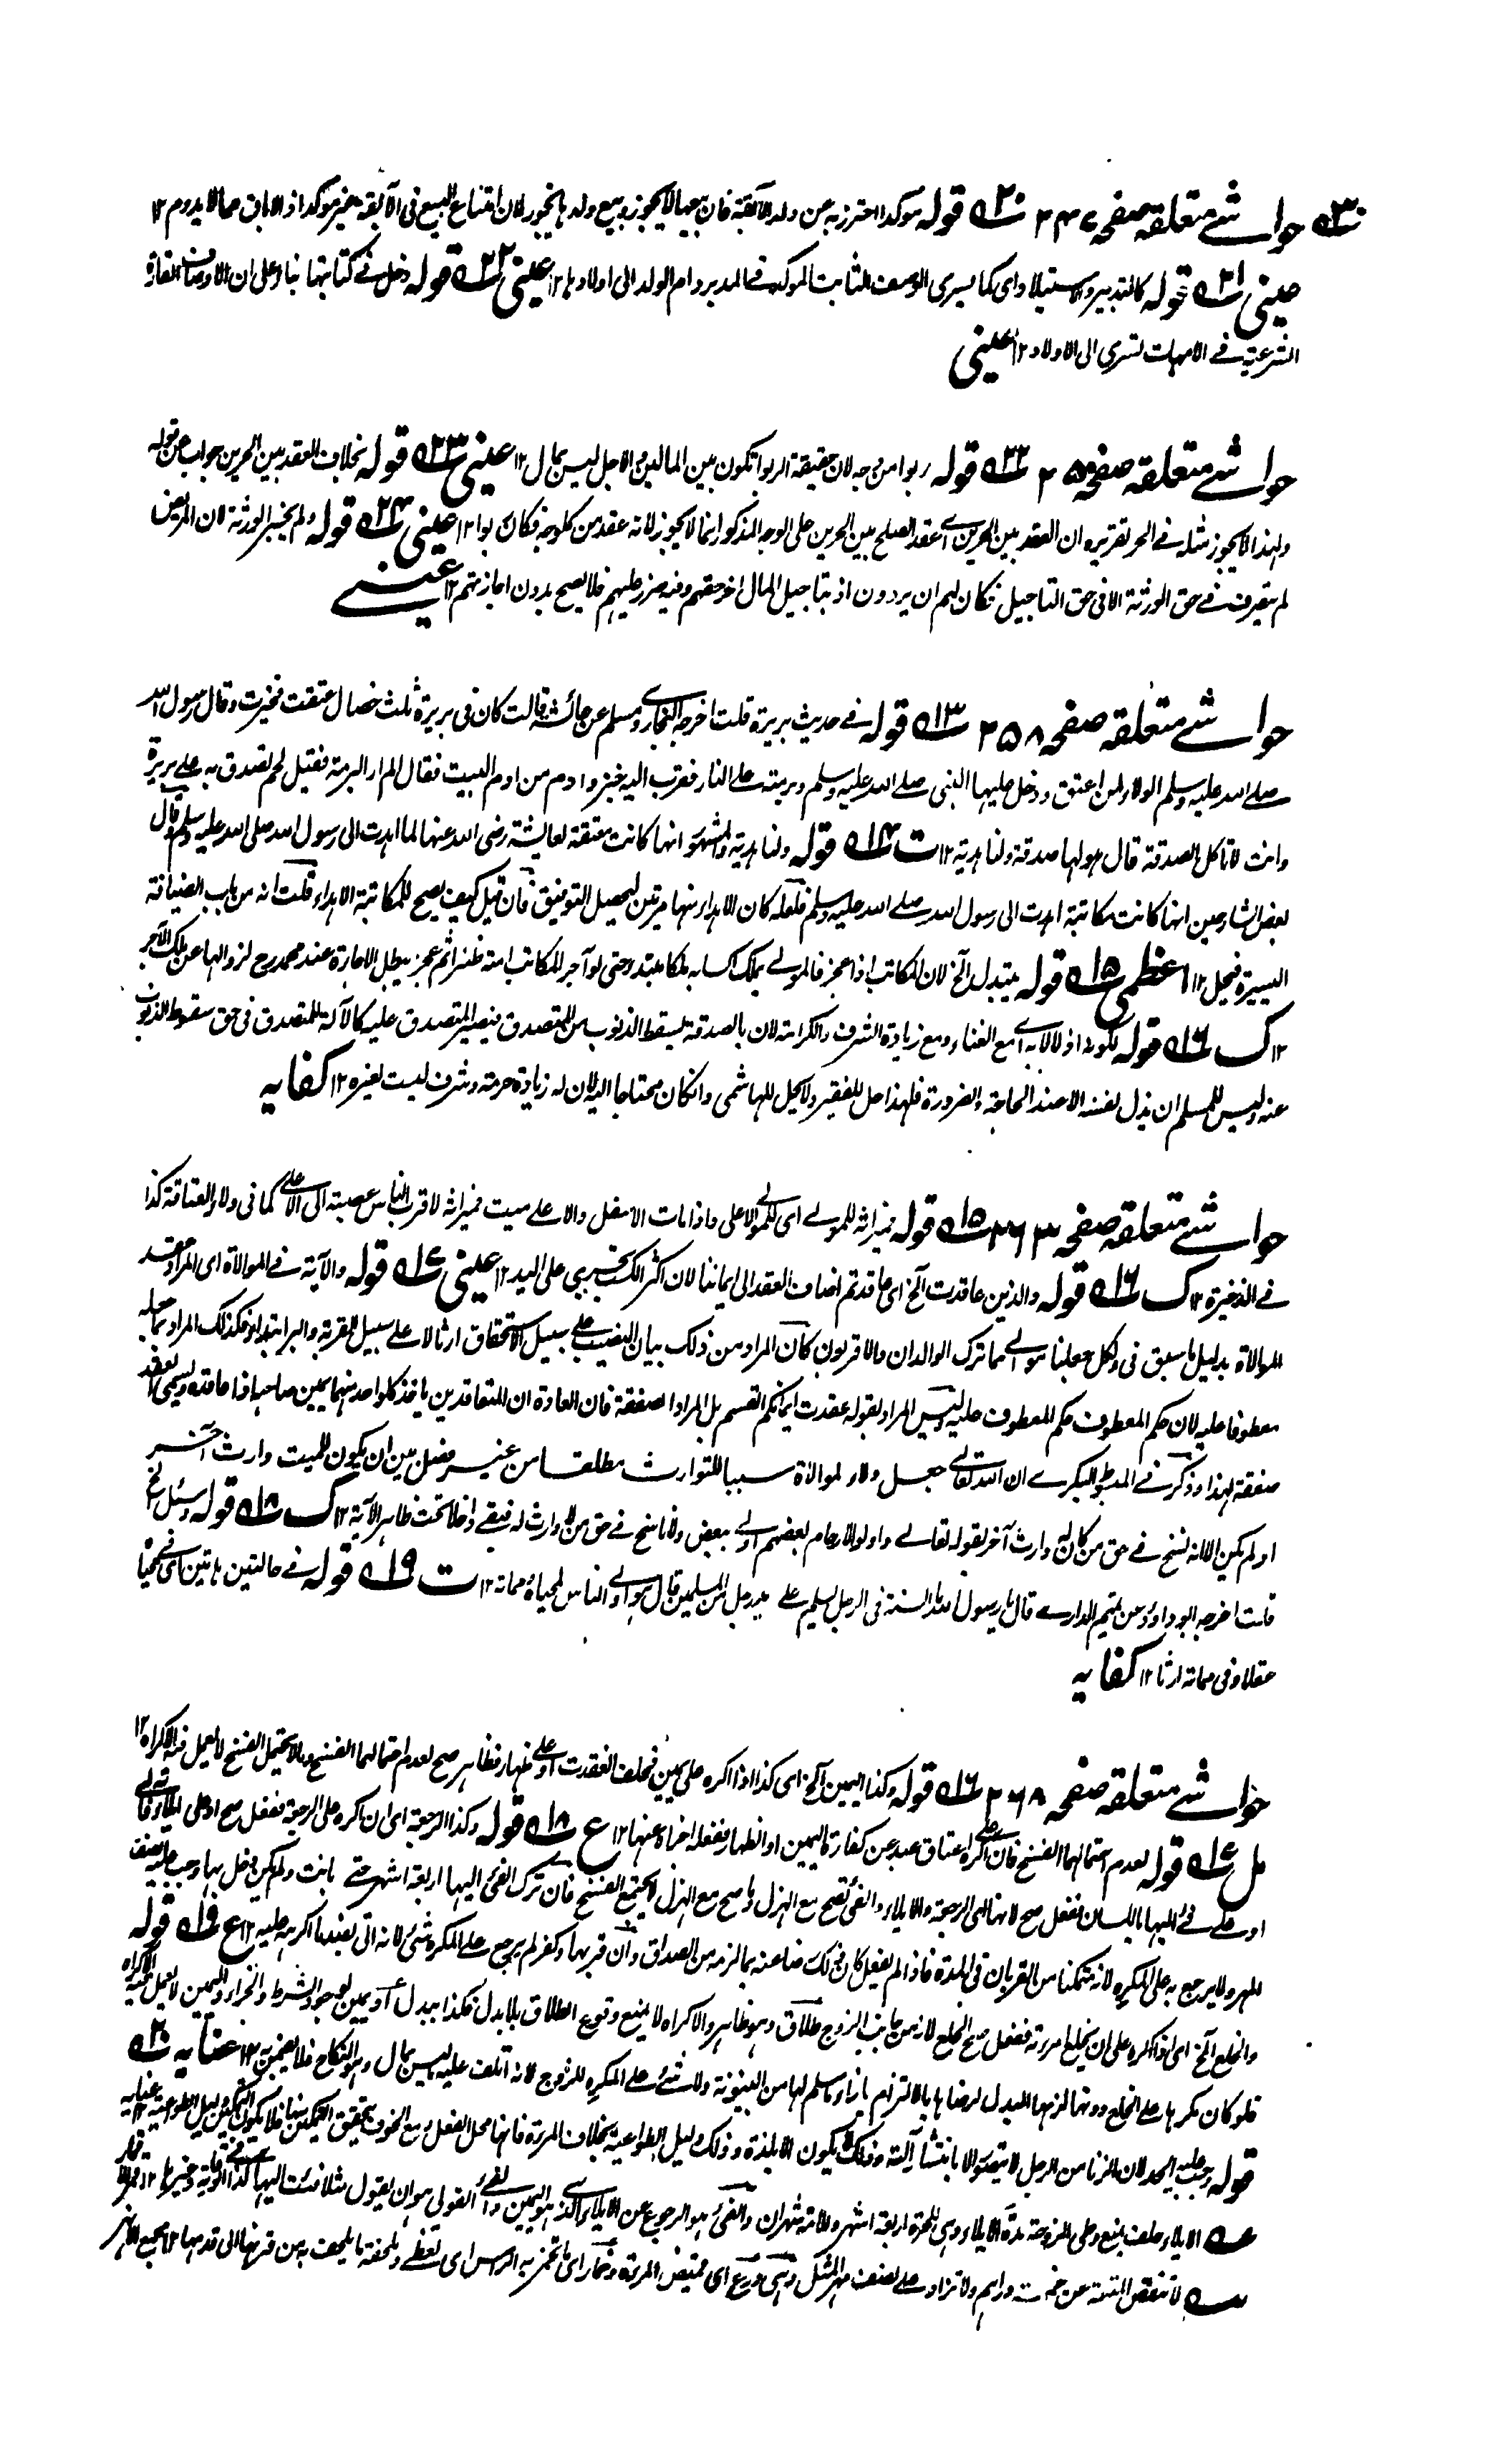 ۵۳۰ حواشے متعلقہ صفحہ ۲۴۷ ۲۰ قوله مؤكدا احترز به عن ولد الآبقة فان بيعها لا يجوز وبيع ولدها يجوز لان امتناع البيع فى الآبقة غير مؤكد اذ الاباق مما لا يدوم ۱۲
عينى ۲۱ قوله كالتدبير والاستيلاد اى كما يسرى الوصف الثابت المؤكد فے المدبر وام الولد الى اولادها ۱۲ عينى ۲۲ قوله دخل فے كتابتها بناء على ان الاوصاف القارة
الشرعية فے الامهات تسرى الى الاولاد ۱۲ عينى
حواشے متعلقہ صفحہ ۲۵۰ ۲۲ قوله ربوا من وجه لان حقيقة الربوا تكون بين المالين والاجل ليس بمال ۱۲ عينى ۲۳ قوله بخلاف العقد بين الحرين جواب عن قوله
ولهذا لا يجوز مثله فے الحر تقريره ان العقد بين الحرين اے عقد الصلح بين الحرين على الوجه المذكور انما لا يجوز لانه عقد من كل وجه فكان ربوا ۱۲ عينى ۲۴ قوله ولم يجيز الورثة لان المريض
لم يتصرف فے حق الورثة الا فى حق التاجيل فكان لهم ان يردوه اذ بتاجيل المال اخر حقهم وفيه ضرر عليهم فلا يصح بدون اجازتهم ۱۲ عينے
حواشے متعلقہ صفحہ ۲۵۸ ۱۳ قوله فے حديث بريرة قلت اخرجه البخارى ومسلم عن عائشة قالت كان فى بريرة ثلث خصال عتقت فخيرت وقال رسول الله
صلے الله عليه وسلم الولاء لمن اعتق ودخل عليها النبى صلے الله عليه وسلم وبرمة علے النار فقرب اليه خبز وادم من ادم البيت فقال الم ار البرمة فقيل لحم تصدق به علے بريرة
وانت لا تاكل الصدقة قال هو لها صدقة ولنا هدية ۱۲ ت ۱۴ قوله ولنا هدية والمشهور انها كانت معتقة لعائشة رضى الله عنها لما اهدت الى رسول الله صلى الله عليه وسلم وقال
بعض الشارحين انها كانت مكاتبة اهدت الى رسول الله صلے الله عليه وسلم فلعله كان الاهداء منها مرتين ليحصل التوفيق فان قيل كيف يصح للمكاتبة الاهداء قلت انه من باب الضيافة
اليسيرة فيحل ۱۲ اعظمى ۱۵ قوله يتبدل الخ لان المكاتب اذا عجز فالمولے يملك اكسابه ملكا مبتدأ حتى لو آجر المكاتب امته ظئرا ثم عجز يبطل الاجارة عند محمد رح لزوالها عن ملك الآجر
۱۲ ك ۱۶ قوله لكونه اذلالا به اے مع الغناء ومع زيادة الشرف والكرامة لان بالصدقة يسقط الذنوب من المتصدق فيصير المتصدق عليه كالآلة للمتصدق فى حق سقوط الذنوب
عنه وليس للمسلم ان يذل نفسه الا عند الحاجة والضرورة فلهذا حل للفقير ولا يحل للهاشمى وانكان محتاجا اليه لان له زيادة حرمة وشرف ليست لغيره ۱۲ كفايه
حواشے متعلقہ صفحہ ۲۶۳ ۱۵ قوله ميراثه للمولے اى للمولے الاعلى واذا مات الاسفل والاعلے ميت فميراثه لاقرب الناس عصبة الى الاعلے كما فى ولاء العتاقة كذا
فے الذخيرة ۱۲ ك ۱۶ قوله والذين عاقدت الخ اى عاقدتم اضاف العقد الى ايماننا لان اكثر الكسب يجرى على اليد ۱۲ عينى ۱۷ قوله والآية فے الموالاة اى المراد عقد
الموالاة بدليل ما سبق فى ولكل جعلنا موالے مما ترك الوالدان والاقربون كان المراد من ذلك بيان النصيب علے سبيل الاستحقاق ارثا لا علے سبيل القربة والبر ابتداء فكذلك المراد بما جعله
معطوفا عليه لان حكم المعطوف حكم المعطوف عليه وليس المراد بقوله عقدت ايمانكم القسم بل المراد الصفقة فان العادة ان المتعاقدين ياخذ كل واحد منهما يمين صاحبه اذا عاقده ويسمى العقد
صفقة لهذا وذكر فے المبسوط البكرے ان الله تعالے جعل ولاء الموالاة سببا للتوارث مطلقا من غير فصل بين ان يكون للميت وارث آخر
او لم يكن الا انه نسخ فے حق من كان له وارث آخر بقوله تعالے واولو الارحام بعضهم اولے ببعض ولا ناسخ فے حق من لا وارث له فبقے داخلا تحت ظاهر الآية ۱۲ ك ۱۸ قوله وسئل الخ
قلت اخرجه ابو داود عن تميم الدارے قال يا رسول الله ما السنة فى الرجل يسلم علے يد رجل من المسلمين قال هو اولے الناس بمحياه ومماته ۱۲ ت ۱۹ قوله فے حالتين هاتين اى فے محياه
عقلا وفى مماته ارثا ۱۲ كفايه
حواشے متعلقہ صفحہ ۲۶۸ ۱۶ قوله وكذا اليمين الخ اى كذا اذا اكره على يمين فحلف انعقدت او علے ظهار فظاهر صح لعدم احتمالهما الفسخ وما لا يحتمل الفسخ لا يعمل فيه الاكراه ۱۲
مل ۱۷ قوله لعدم احتمالها الفسخ فان اكره علے اعتاق عبد عن كفارة اليمين او الظهار ففعله اجزاه عنها ۱۲ ع ۱۸ قوله وكذا الرجعة اى ان اكره على الرجعة ففعل صح او على الايلاء
او علے فئ اليها باللسان ففعل صح لانهما الرجعة والايلاء والفئ تصح مع الهزل وما صح مع الهزل لا يحتمل الفسخ فان ترك الفئ اليها اربعة اشهر حتے بانت ولم يكن دخل بها وجب عليه نصف
المهر ولا يرجع به على المكره لانه متمكنا من القربان فى المدة فاذا لم يفعل كان ذلك رضا منه بما لزمه من الصداق وان قربها وكفر لم يرجع علے المكره بشئ لانه اتى بضد ما اكره عليه ۱۲ ع ۱۹ قوله
والخلع الخ اى اذا اكره على ان يخلع امرءته ففعل صح الخلع لانه من جانب الزوج طلاق وهو ظاهر والاكراه لا يمنع وقوع الطلاق بلا بدل فكذا ببدل او يمين لوجود الشرط والجزاء واليمين لا يعمل فيه الاكراه
فلو كان مكرها علے الخلع دونها لزمها البدل لرضاها بالالتزام بازاء ما سلم لها من البينونة ولا شئ علے المكره للزوج لانه اتلف عليه ما ليس بمال وهو النكاح فلا يضمن به ۱۲ عنايه ۲۰
قوله وجب عليه الحد لان الزنا من الرجل لا يتصور الا بانتشار آلته وذلك لا يكون الا بلذة وذلك دليل الطواعية بخلاف المرءة فانها محل الفعل ومع الخوف يتحقق التمكين منها فلا يكون التمكين دليل الطواعية ۱۲ عنايه
عه الايلاء حلف يمنع وطى الزوجة مدة الايلاء وهى للحرة اربعة اشهر وللامة شهران والفئ هو الرجوع عن الايلاء الذے هو اليمين والفئ القولى هو ان يقول مثلا فئت اليها كذا
سه لا تنقص المتعة عن خمسة دراهم ولا تزاد علے نصف مهر المثل وهى درع اى قميص المرءة وخمار اى ما تخمر به الراس اى تغطے وملحفة ما يلتحف به من قرنها الى قدمها ۱۲ مجمع الانهر